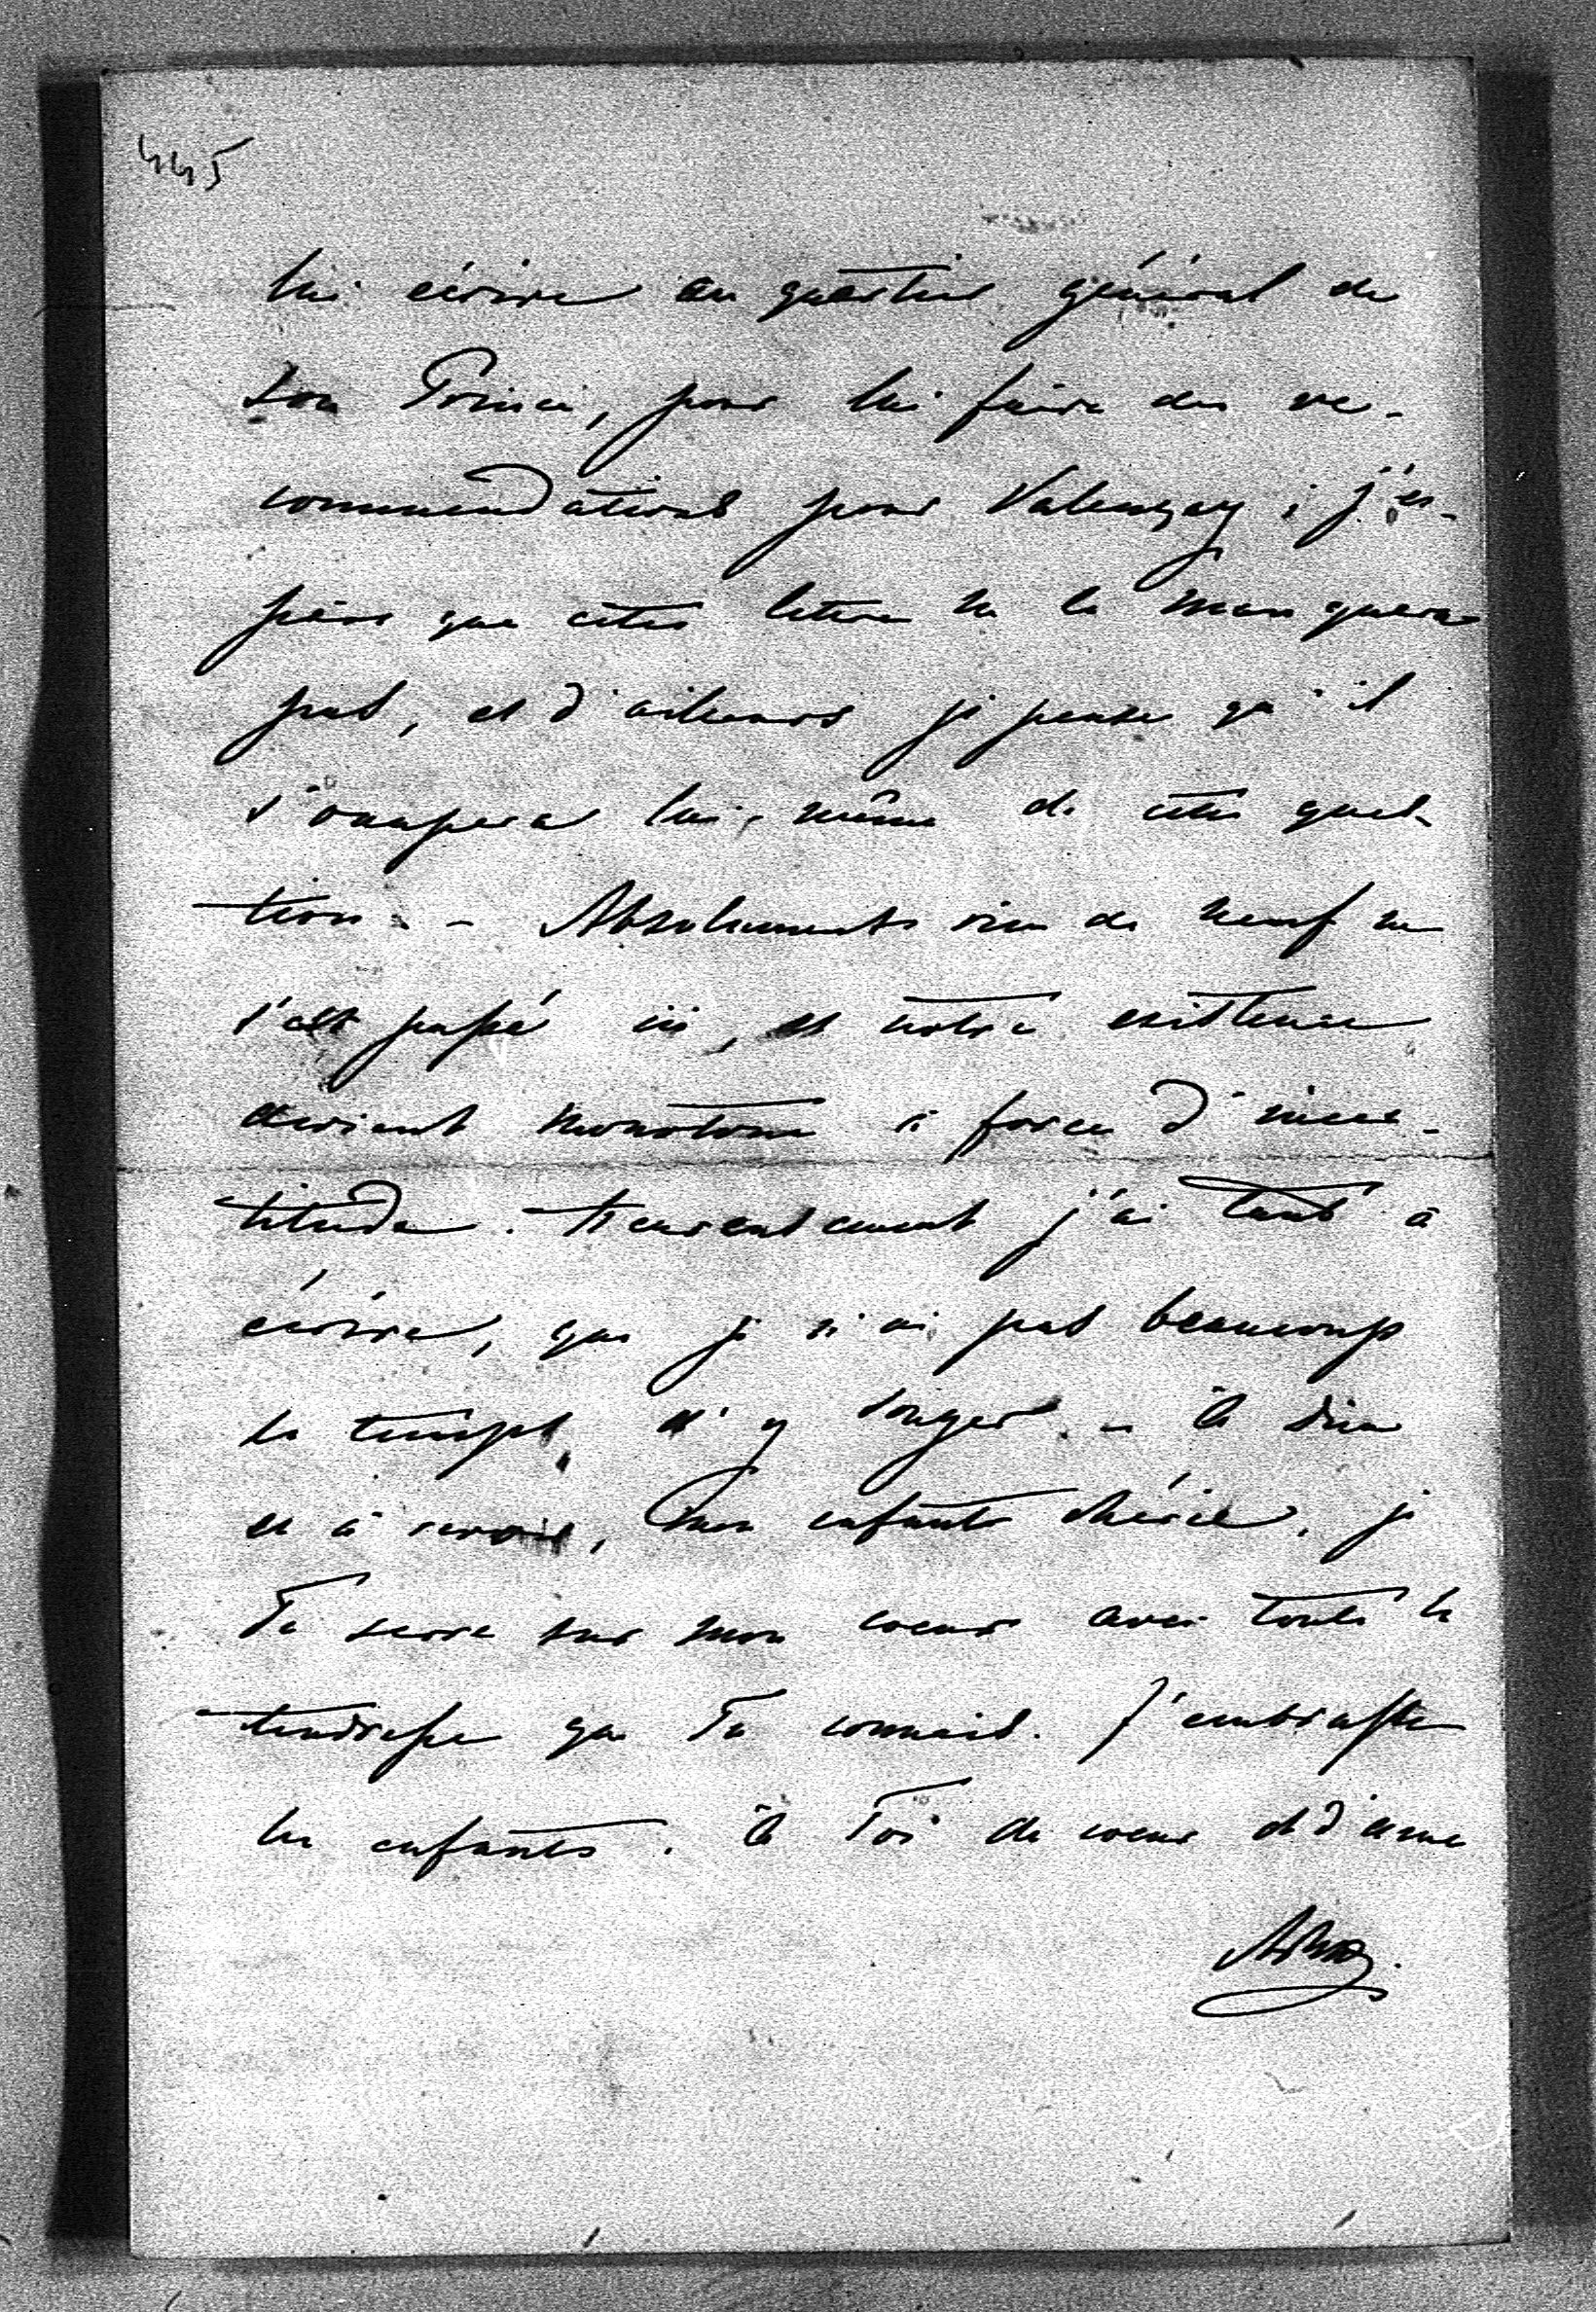 445
lui écrire au quartier général de
son Prince, pour lui faire des re-
commendations pour Valençay; j'es-
père que cette lettre ne le manquera
pas, et d'ailleurs je pense qu'il
s'occupera lui-même de cette ques-
tion. - Absolument rien de neuf ne
s'est passé ici, et notre existence
devient monotone à force d'incer-
titude. Heureusement j'ai tant à
écrire, que je n'ai pas beaucoup
le temps d'y songer. - à Dieu
et à revoir, mon enfant chérie. je
Te serre sur mon coeur avec toute la
tendresse que Tu connais. J'embrasse
les enfants. à Toi de coeur et d'âme